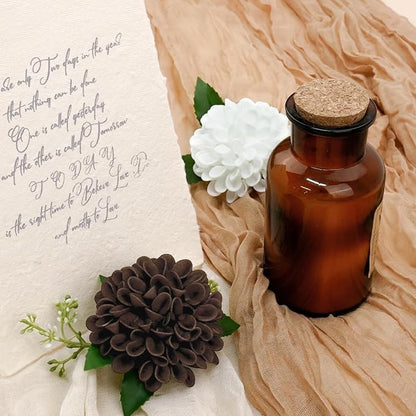 are only Two days in the year
that nothing can be done
One is called yesterday
and the other is called Tomorrow
TODAY
is the right time to Believe Love D.
and mostly to Love